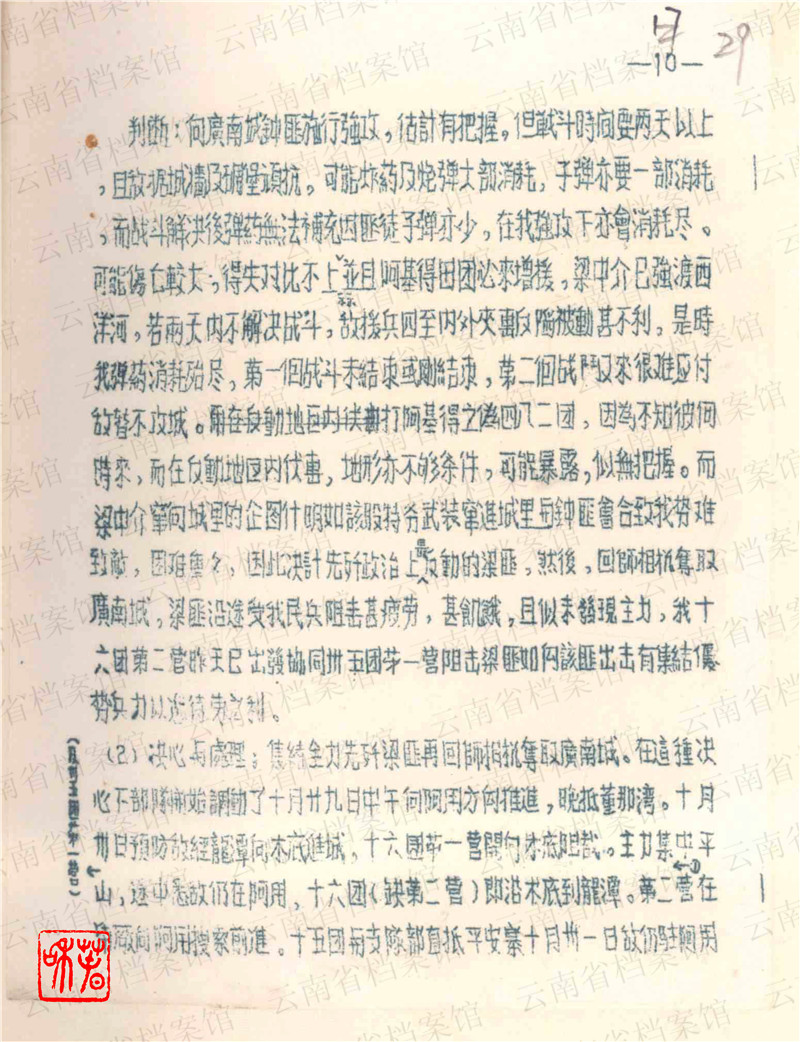 29
—10—
判断：向廣南城鈡匪施行強攻，估計有把握。但戰斗時间要两天以上
，且敌据城墙及碉堡頑抗。可能炸药及炮弹大部消耗，子弹亦要一部消耗
，而战斗解决後弹药無法補充因匪徒子弹亦少，在我強攻下亦會消耗尽。
可能傷亡較大；得失对比不上並且阿基得田团必來增援，梁中介已強渡西
洋河，若兩天内不解决战斗，敌援兵四至内外夾擊反陷被動甚不利，是時
我弹药消耗殆尽，第一個战斗未結束或剛結束，第二個战鬥又來很难应付
故暫不攻城。打阿基得之偽四八二团，因為不知彼何
時來，而在反動地区内伏擊，地形亦不够条件，可能暴露，似無把握。而
梁中介竄向城里的企图什明如該股特务武装竄進城里與鈡匪會合致我势难
致敵，困难，因此决計先歼政治上最反動的梁匪，然後，回師相机奪取
廣南城，梁匪沿途受我民兵阻击甚疲劳，甚飢餓，且似未發現主力，我十
六团第二营昨天已出發協同卅五团第一营阻击梁匪如何該匪出击有集結優
势兵力以逸待劳之利。
（2）决心与處理：集結全力先歼梁匪再回師相机奪取廣南城。在這種决
心下部隊開始調動了十月廿九日中午向阿用方向推進，晚抵董那湾。十月
卅日預防敌經龍潭向木底進城，十六團第一營開向木底阻截。主力集中平
山，途中悉敌仍在阿用，十六团（缺第二營）即沿木底到龍潭。第二營在
向阿用搜索前進。十五团與支隊部直抵平安寨十月卅一日敌仍駐阿用